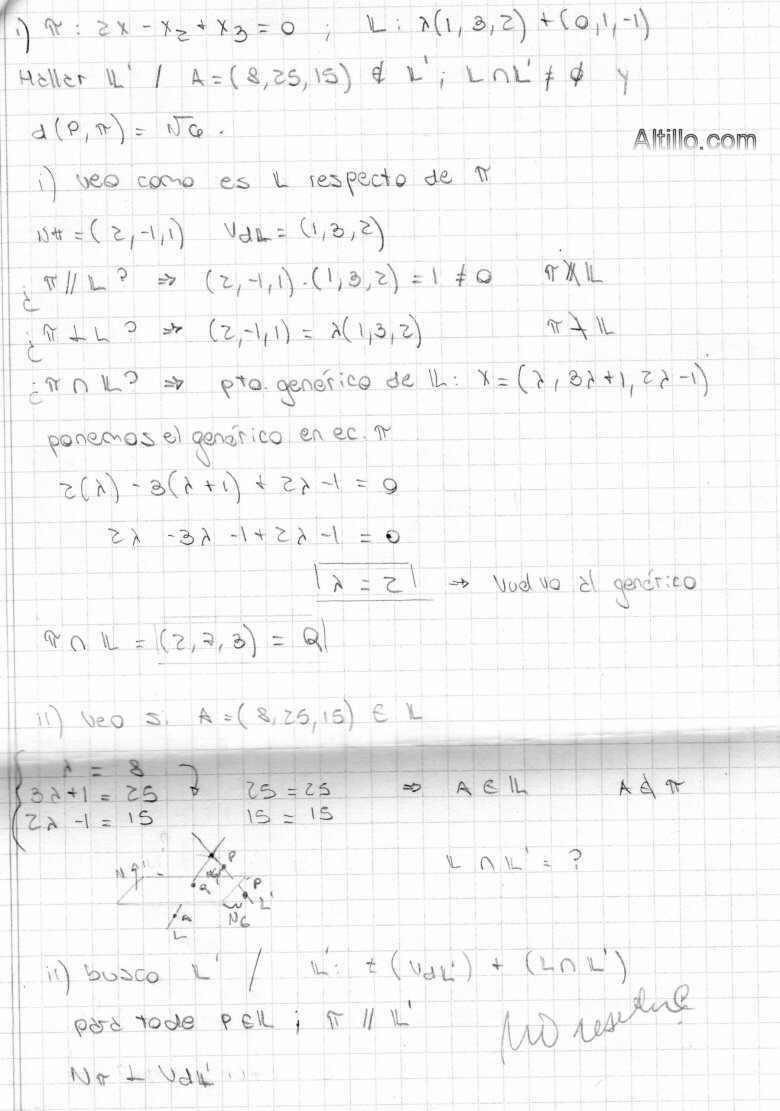 i) π : 2x - x₂ + x₃ = 0 ; 𝕃 : λ(1, 3, 2) + (0, 1, -1)
Hallar 𝕃' / A = (8, 25, 15) ∉ 𝕃' ; 𝕃 ∩ 𝕃' ≠ ∅ y
d(P, π) = √6 .
Altillo.com
i) veo como es 𝕃 respecto de π
Nπ = (2, -1, 1) Vd𝕃 = (1, 3, 2)
¿ π // 𝕃 ? ⇒ (2, -1, 1) · (1, 3, 2) = 1 ≠ 0 π ∦ 𝕃
¿ π ⊥ 𝕃 ? ⇒ (2, -1, 1) = λ(1, 3, 2) π ⊥̸ 𝕃
¿ π ∩ 𝕃 ? ⇒ pto. genérico de 𝕃 : X = (λ, 3λ+1, 2λ-1)
ponemos el genérico en ec. π
2(λ) - 3(λ+1) + 2λ - 1 = 0
2λ - 3λ - 1 + 2λ - 1 = 0
λ = 2 ⇒ vuelvo al genérico
π ∩ 𝕃 = (2, 7, 3) = Q
ii) veo si A = (8, 25, 15) ∈ 𝕃
λ = 8
3λ+1 = 25 25 = 25 ⇒ A ∈ 𝕃 A ∉ π
2λ - 1 = 15 15 = 15
𝕃 ∩ 𝕃' = ?
P
Q
P
L'
a
√6
L
ii) busco 𝕃' / 𝕃' : t (Vd𝕃') + (𝕃 ∩ 𝕃')
para todo P ∈ 𝕃 ; π // 𝕃'
NO
Nπ ⊥ Vd𝕃' ...